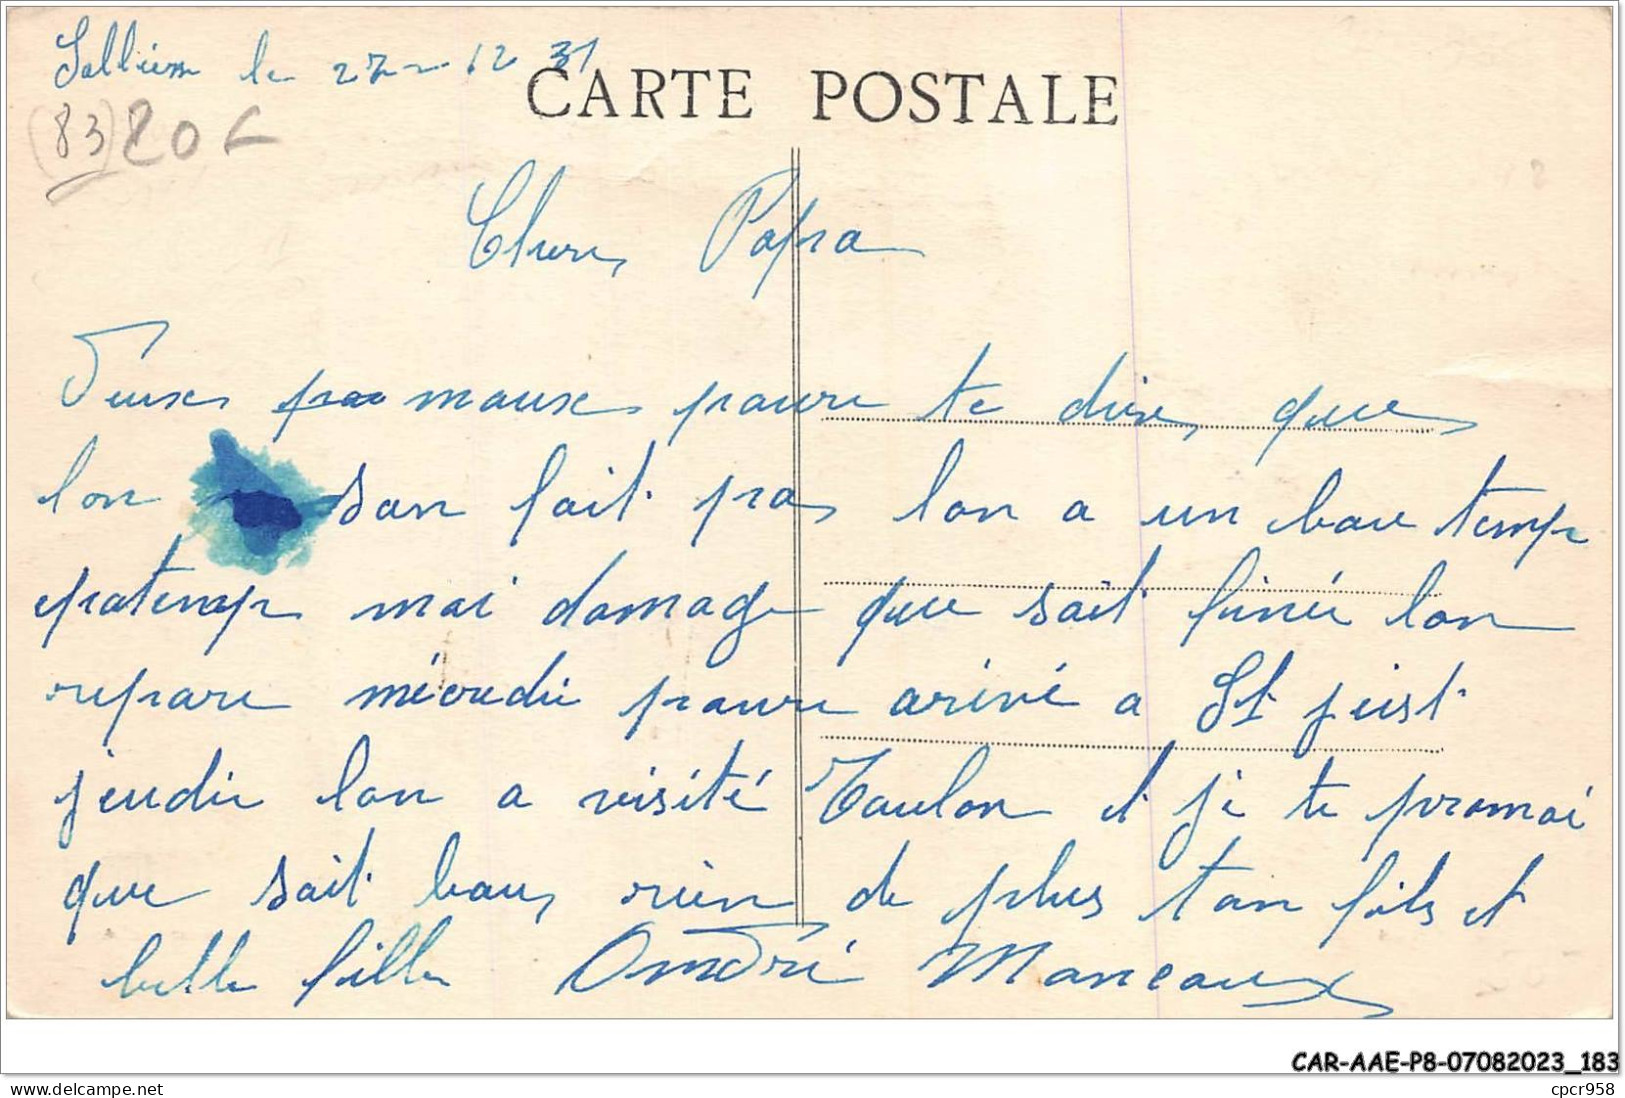 le 27 - 12 31
CARTE POSTALE
(83) 20 €
Cher Papa
Deux maux pour te dire que
lon san fait pas lon a un bau temp
mai domage que sait finie lon
repare mécredie pour arivé a St just
jeudie lon a visité Toulon et je te promai
que sait bau rien de plus ton fils et
belle fille André Manceaux
CAR-AAE-P8-07082023_183
www.delcampe.net
cpcr958